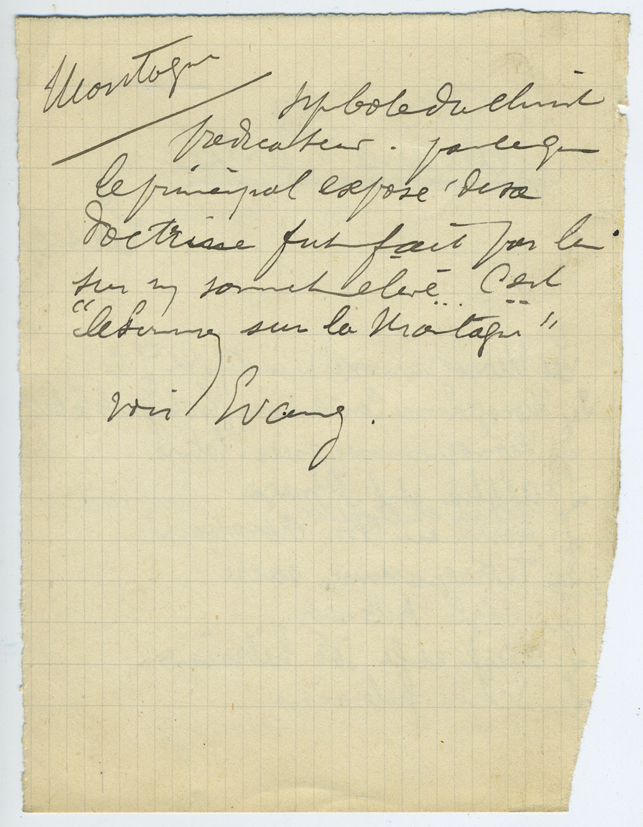 Montagne
symbole du Christ
Prédicateur. parce que
le principal exposé de sa
doctrine fut fait par lui
sur un sommet élevé... C'est
"le Sermon sur la Montagne"
voir Evang.